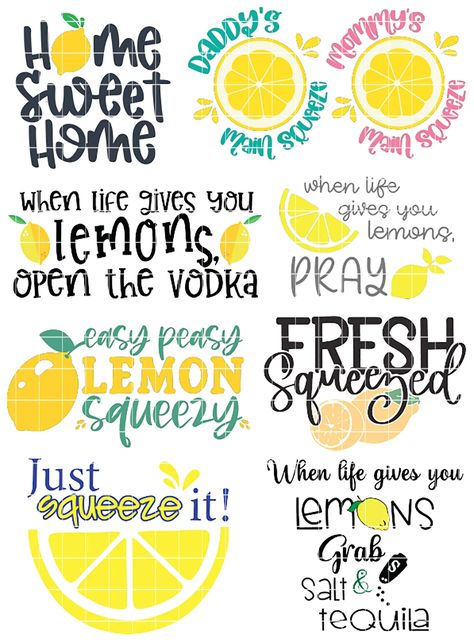 Home
Sweet
Home
Daddy's
Main Squeeze
Mommy's
Main Squeeze
when life gives you
lemons,
open the vodka
when life
gives you
lemons,
PRAY
easy peasy
LEMON
squeezy
FRESH
Squeezed
Just
squeeze it!
When life gives you
LEMONS
Grab
salt &
tequila
S